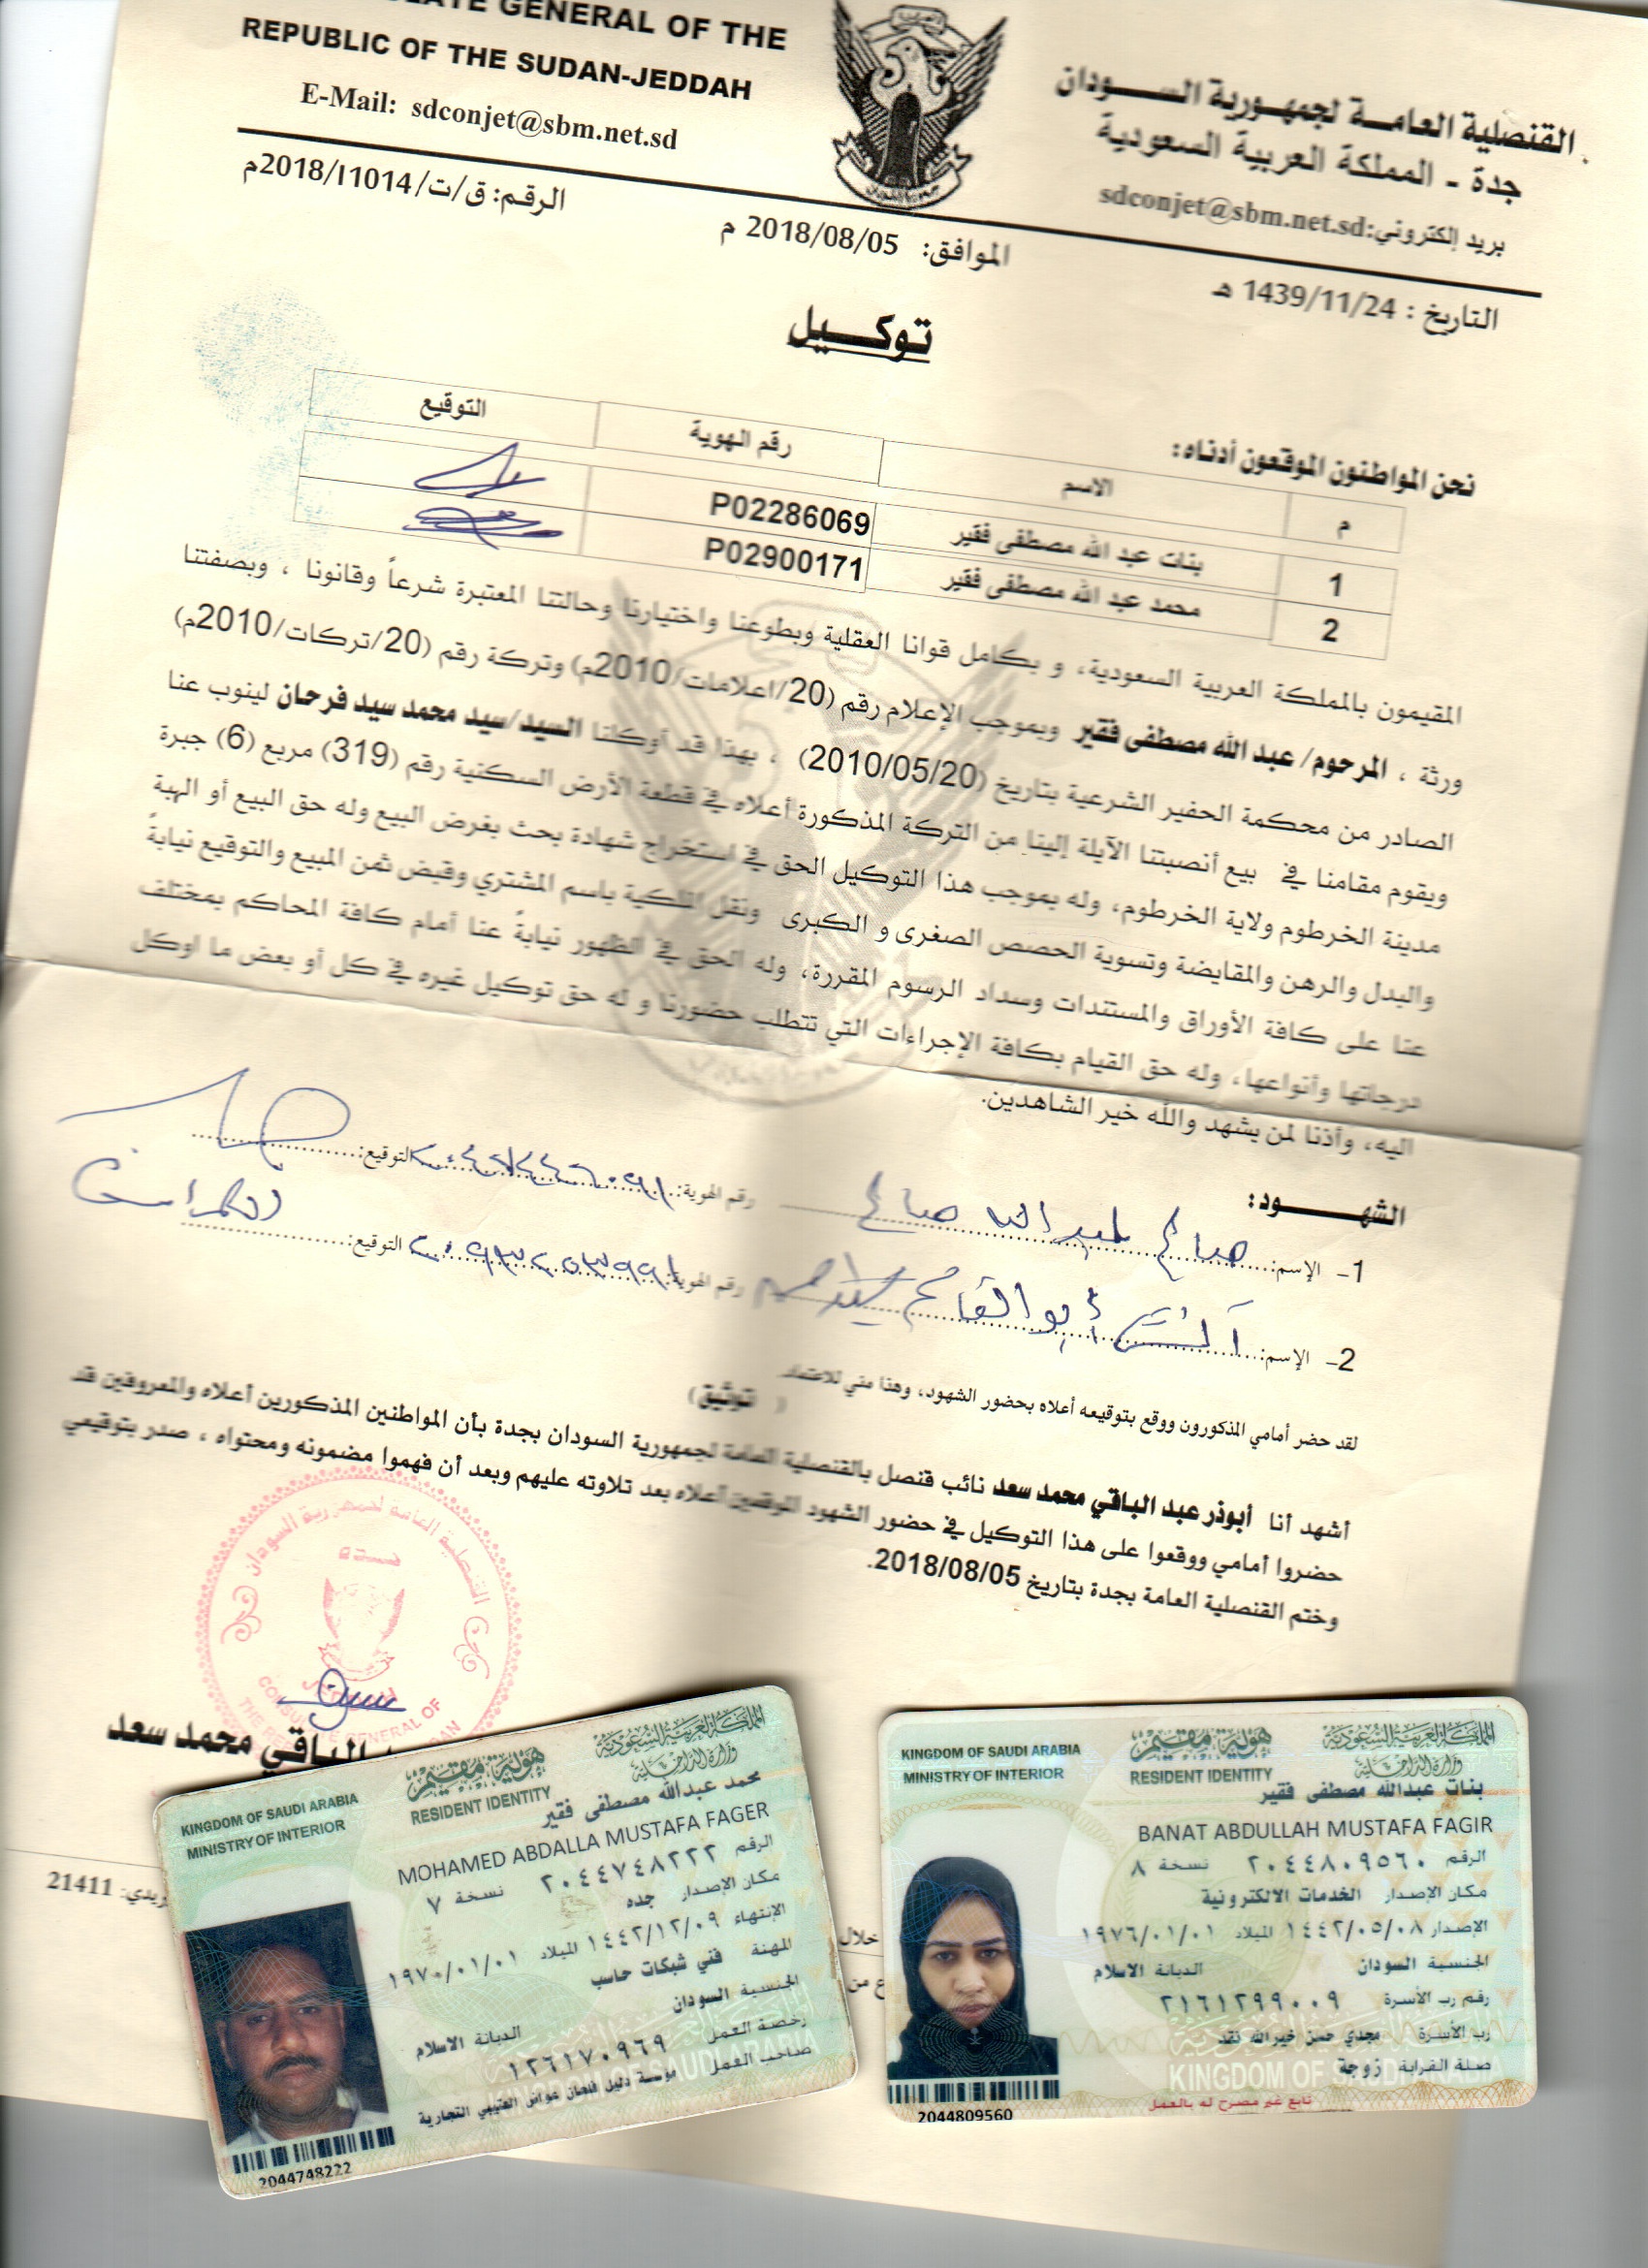 GENERAL OF THE
REPUBLIC OF THE SUDAN-JEDDAH
E-Mail: sdconjet@sbm.net.sd
القنصلية العامة لجمهورية السودان
جدة - المملكة العربية السعودية
بريد إلكتروني:sdconjet@sbm.net.sd
التاريخ : 1439/11/24 هـ
الموافق: 2018/08/05 م
الرقم: ق/ت/11014/2018م
توكيل
نحن المواطنون الموقعون أدناه:
م الاسم رقم الهوية التوقيع
1 بنات عبد الله مصطفى فقير P02286069
2 محمد عبد الله مصطفى فقير P02900171
المقيمون بالمملكة العربية السعودية، و بكامل قوانا العقلية وبطوعنا واختيارنا وحالتنا المعتبرة شرعاً وقانونا ، وبصفتنا
ورثة ، المرحوم/ عبد الله مصطفى فقير وبموجب الإعلام رقم (20/اعلامات/2010م) وتركة رقم (20/تركات/2010م)
الصادر من محكمة الحفير الشرعية بتاريخ (2010/05/20) ، بهذا قد أوكلنا السيد/سيد محمد سيد فرحان لينوب عنا
ويقوم مقامنا في بيع أنصبتنا الآيلة إلينا من التركة المذكورة أعلاه في قطعة الأرض السكنية رقم (319) مربع (6) جبرة
مدينة الخرطوم ولاية الخرطوم، وله بموجب هذا التوكيل الحق في استخراج شهادة بحث بغرض البيع وله حق البيع أو الهبة
والبدل والرهن والمقايضة وتسوية الحصص الصغرى و الكبرى ونقل الملكية باسم المشتري وقبض ثمن المبيع والتوقيع نيابةً
عنا على كافة الأوراق والمستندات وسداد الرسوم المقررة، وله الحق في الظهور نيابةً عنا أمام كافة المحاكم بمختلف
درجاتها وأنواعها، وله حق القيام بكافة الإجراءات التي تتطلب حضورنا و له حق توكيل غيره في كل أو بعض ما اوكل
اليه، وأذنا لمن يشهد والله خير الشاهدين.
الشهــود:
1- الإسم: صالح عبدالله صالح رقم الهوية: التوقيع:
2- الإسم: أبوالقاسم رقم الهوية: التوقيع:
لقد حضر أمامي المذكورون ووقع بتوقيعه أعلاه بحضور الشهود، وهذا مني للاعتماد.
( توثيق)
أشهد أنا أبوذر عبد الباقي محمد سعد نائب قنصل بالقنصلية العامة لجمهورية السودان بجدة بأن المواطنين المذكورين أعلاه والمعروفين قد
حضروا أمامي ووقعوا على هذا التوكيل في حضور الشهود الموقعين أعلاه بعد تلاوته عليهم وبعد أن فهموا مضمونه ومحتواه ، صدر بتوقيعي
وختم القنصلية العامة بجدة بتاريخ 2018/08/05.
القنصلية العامة لجمهورية السودان
جدة
GENERAL OF
الباقي محمد سعد
21411
خلال
ع من
المملكة العربية السعودية
وزارة الداخلية
هوية مقيم
RESIDENT IDENTITY
KINGDOM OF SAUDI ARABIA
MINISTRY OF INTERIOR
محمد عبدالله مصطفى فقير
MOHAMED ABDALLA MUSTAFA FAGER
الرقم ٢٠٤٤٧٤٨٢٢٢ نسخة ٧
مكان الإصدار جده
الإنتهاء ١٤٤٢/١٢/٠٩ الميلاد ١٩٧٠/٠١/٠١
المهنة فني شبكات حاسب
الجنسية السودان الديانة الاسلام
رخصة العمل ١٢٦١٧٠٩٦٩
صاحب العمل مؤسسة دليل فنصان عواض العتيبي التجارية
KINGDOM OF SAUDI ARABIA
2044748222
المملكة العربية السعودية
وزارة الداخلية
هوية مقيم
RESIDENT IDENTITY
KINGDOM OF SAUDI ARABIA
MINISTRY OF INTERIOR
بنات عبدالله مصطفى فقير
BANAT ABDULLAH MUSTAFA FAGIR
الرقم ٢٠٤٤٨٠٩٥٦٠ نسخة ٨
مكان الإصدار الخدمات الالكترونية
الإصدار ١٤٤٢/٠٥/٠٨ الميلاد ١٩٧٦/٠١/٠١
الجنسية السودان الديانة الاسلام
رقم رب الأسرة ٢١٦١٢٩٩٠٠٩
رب الأسرة مجدي حسن خيرالله نقد
صلة القرابة زوجة
KINGDOM OF SAUDI ARABIA
تابع غير مصرح له بالعمل
2044809560